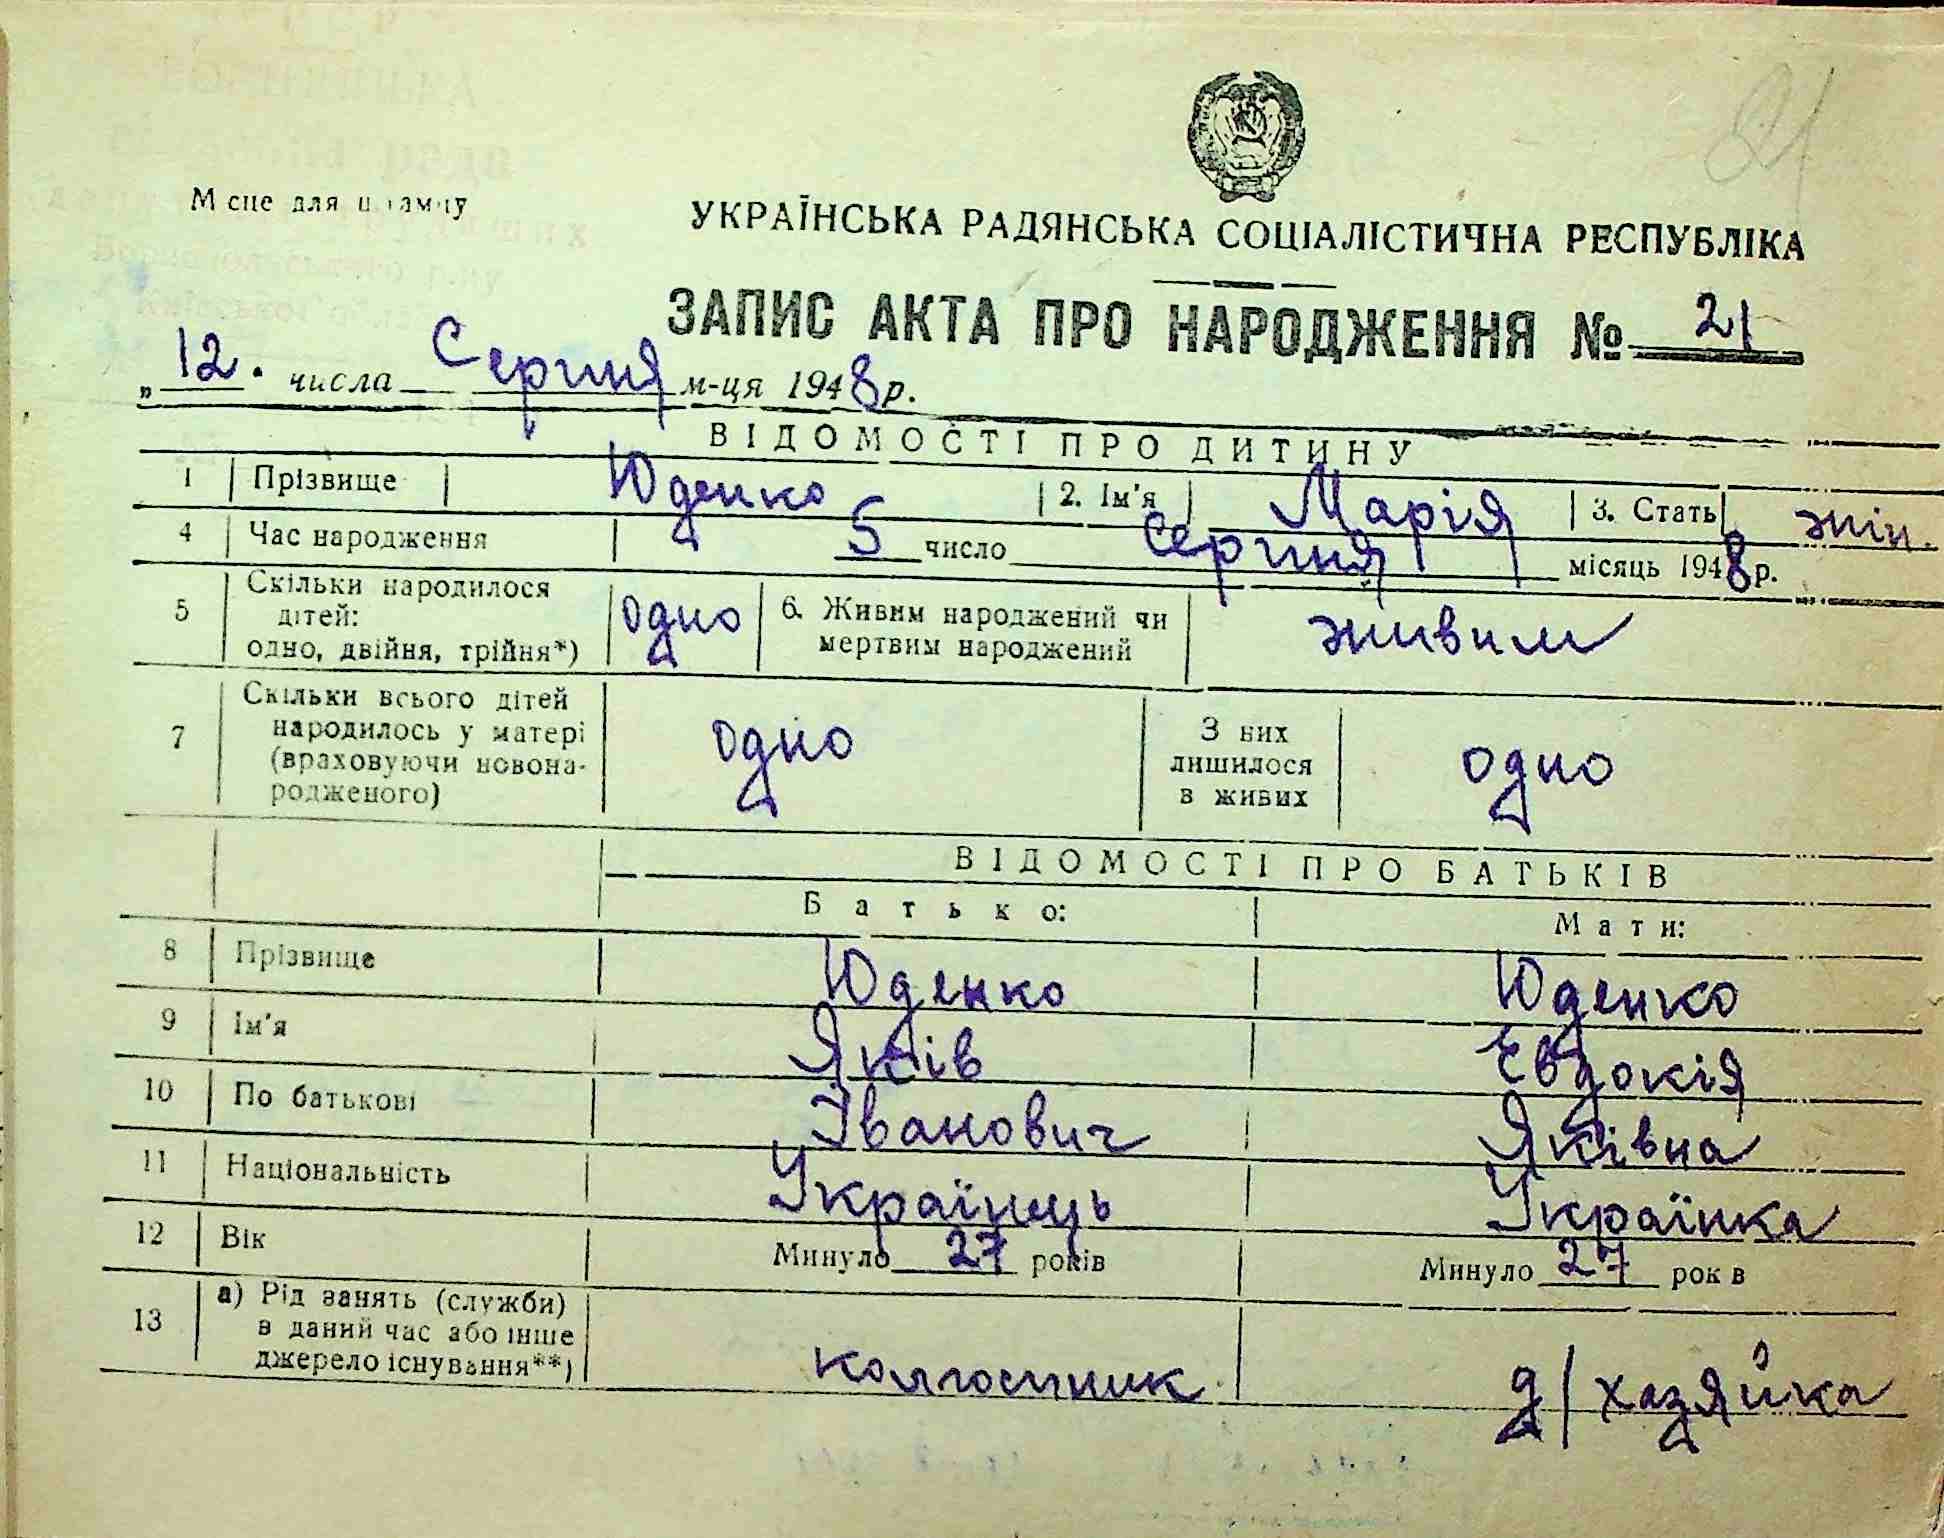 21
Місце для штампу
УКРАЇНСЬКА РАДЯНСЬКА СОЦІАЛІСТИЧНА РЕСПУБЛІКА
ЗАПИС АКТА ПРО НАРОДЖЕННЯ № 21
„ 12. числа Серпня м-ця 1948 р.
ВІДОМОСТІ ПРО ДИТИНУ
1 Прізвище Юденко 2. Ім'я Марія 3. Стать жін.
4 Час народження 5 число Серпня місяць 1948 р.
5 Скільки народилося дітей: одно, двійня, трійня*) одно 6. Живим народжений чи мертвим народжений живим
7 Скільки всього дітей народилось у матері (враховуючи новонародженого) одно З них лишилося в живих одно
ВІДОМОСТІ ПРО БАТЬКІВ
Батько: Мати:
8 Прізвище Юденко Юденко
9 Ім'я Яків Євдокія
10 По батькові Іванович Яківна
11 Національність Українець Українка
12 Вік Минуло 27 років Минуло 27 рок в
13 а) Рід занять (служби) в даний час або інше джерело існування**) колгоспник д/хазяйка